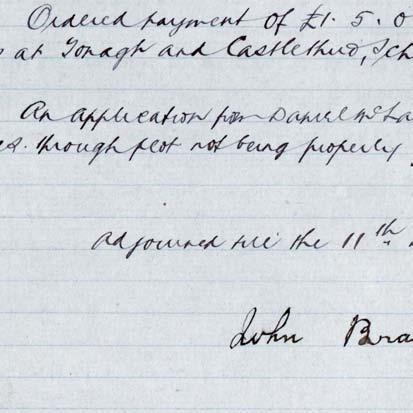 Ordered payment of £1. 5. 0
at Tonagh and Castlethird, Sch
An application from Daniel McLa
through plot not being properly
adjourned till the 11th
John Bra